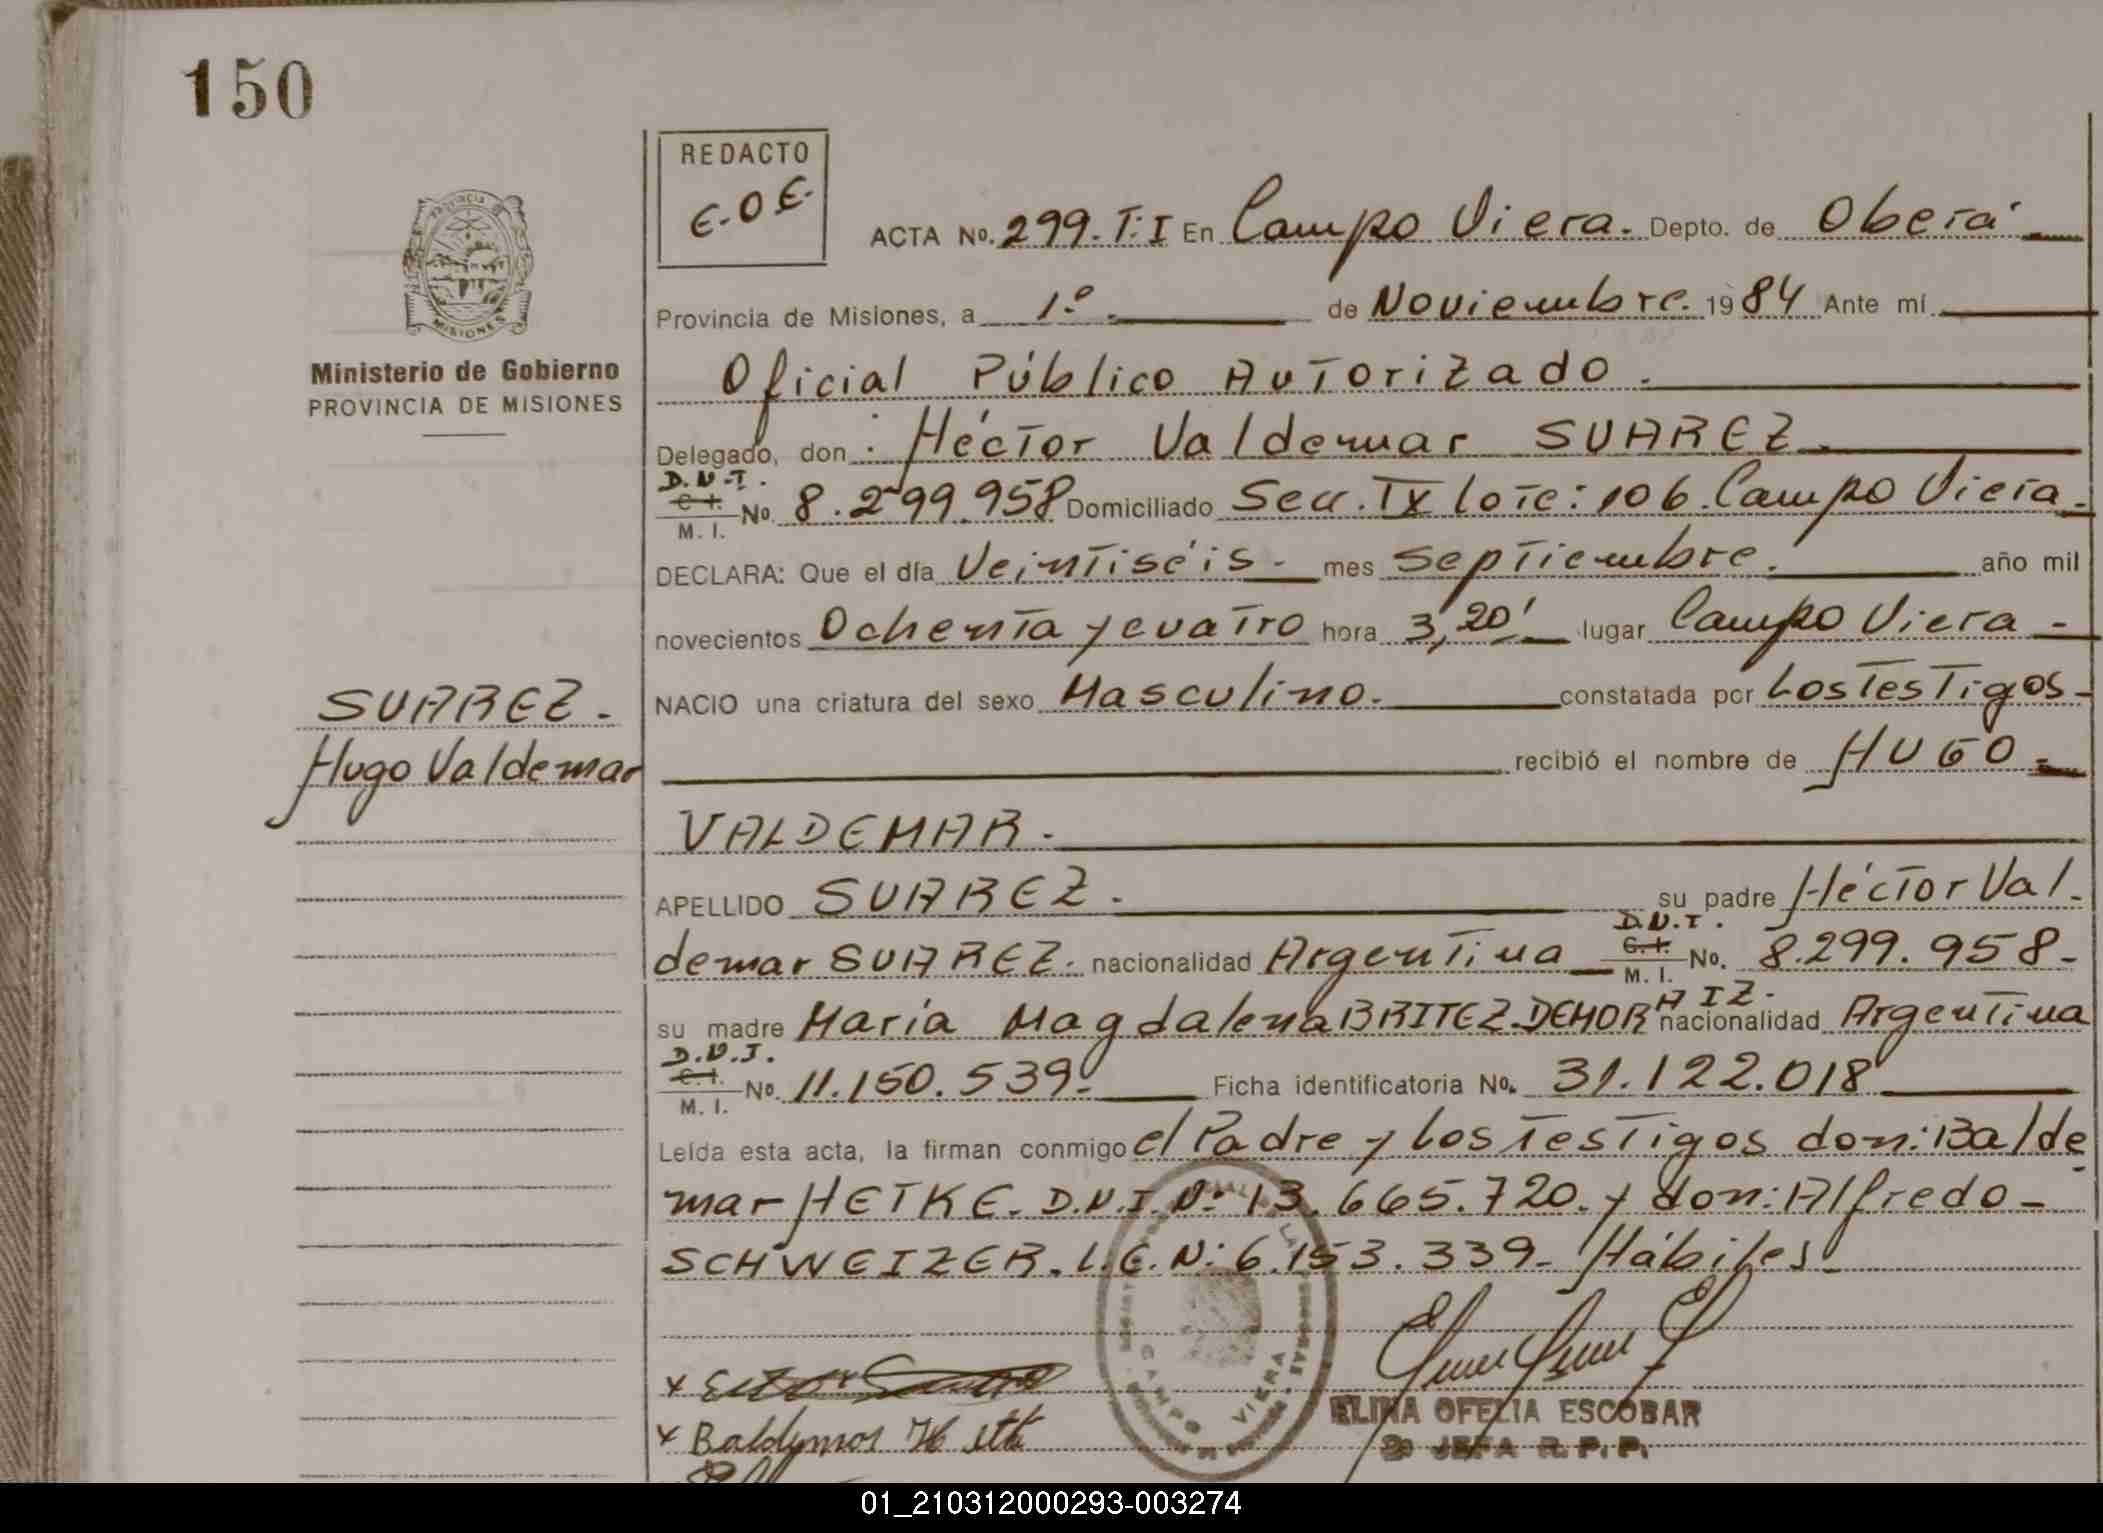 150
REDACTO
E.O.E.
PROVINCIA DE
MISIONES
Ministerio de Gobierno
PROVINCIA DE MISIONES
SUAREZ.
Hugo Valdemar
ACTA No. 299.T.I En Campo Viera. Depto. de Oberá
Provincia de Misiones, a 1º. de Noviembre. 1984 Ante mí
Oficial Público Autorizado.
Delegado, don: Héctor Valdemar SUAREZ.
D.N.I.
C. I.
M. I. No. 8.299.958 Domiciliado Secc. IX lote: 106. Campo Viera.
DECLARA: Que el día Veintiséis. mes Septiembre. año mil
novecientos Ochenta y cuatro hora 3,20' lugar Campo Viera
NACIO una criatura del sexo Masculino. constatada por Los Testigos
recibió el nombre de HUGO
VALDEMAR.
APELLIDO SUAREZ. su padre Héctor Val-
demar SUAREZ. nacionalidad Argentina D.N.I. C. I. M. I. No. 8.299.958
su madre María Magdalena BRITEZ. DEMORAIZ. nacionalidad Argentina
D.N.I.
C. I.
M. I. No. 11.150.539. Ficha identificatoria No. 31.122.018
Leída esta acta, la firman conmigo el Padre y los Testigos don: Balde
mar HETKE. D.N.I. Nº 13.665.720. y don: Alfredo
SCHWEIZER. L.E. N: 6.153.339- Hábiles.
CAMPO VIERA
ELINA OFELIA ESCOBAR
JEFA R.P.P.
01_210312000293-003274